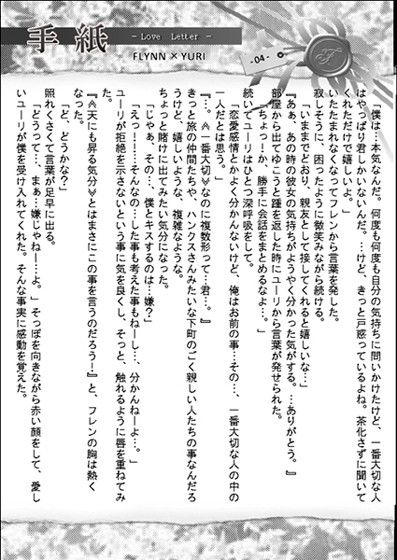 手紙
- Love Letter -
FLYNN×YURI
-04-
「僕は…本気なんだ。何度も何度も自分の気持ちに問いかけたけど、一番大切な人
はやっぱり君しかいないんだ。…けど、きっと戸惑っているよね。茶化さずに聞いて
くれただけで嬉しいよ。」
いたたまれなくなってフレンから言葉を発した。
寂しそうに、困ったように微笑みながら続ける。
「いままでどおり、親友として接してくれると嬉しいな…」
『あぁ、あの時の彼女の気持ちがようやく分かった気がする。…ありがとう。』
部屋から出てゆこうと踵を返した時にユーリから言葉が発せられた。
「ちょっ…か、勝手に会話をまとめるなよ…。」
続いてユーリはひとつ深呼吸をして。
「恋愛感情とかよく分かんないけど、俺はお前の事…その…、一番大切な人の中の
一人だとは思う。」
『…。《一番大切》なのに複数形って…君…。』
きっと旅の仲間たちや、ハンクスさんみたいな下町のごく親しい人たちの事なんだろ
うけど、嬉しいような、複雑なような。
ちょっと賭けに出てみたい気分になった。
「じゃあ、その…、僕とキスするのは…嫌？」
「えっ！……そんなの…した事も考えた事もねーし…、分かんねーよ…。」
ユーリが拒絶を示さないという事に気を良くし、そっと、触れるように唇を重ねてみ
た。
『《天にも昇る気分》とはまさにこの事を言うのだろう！』と、フレンの胸は熱く
なった。
「ど、どうかな？」
照れくさくて言葉が足早に出る。
「どうって…、まぁ…嫌じゃねー…よ。」そっぽを向きながら赤い顔をして、愛し
いユーリが僕を受け入れてくれた。そんな事実に感動を覚えた。